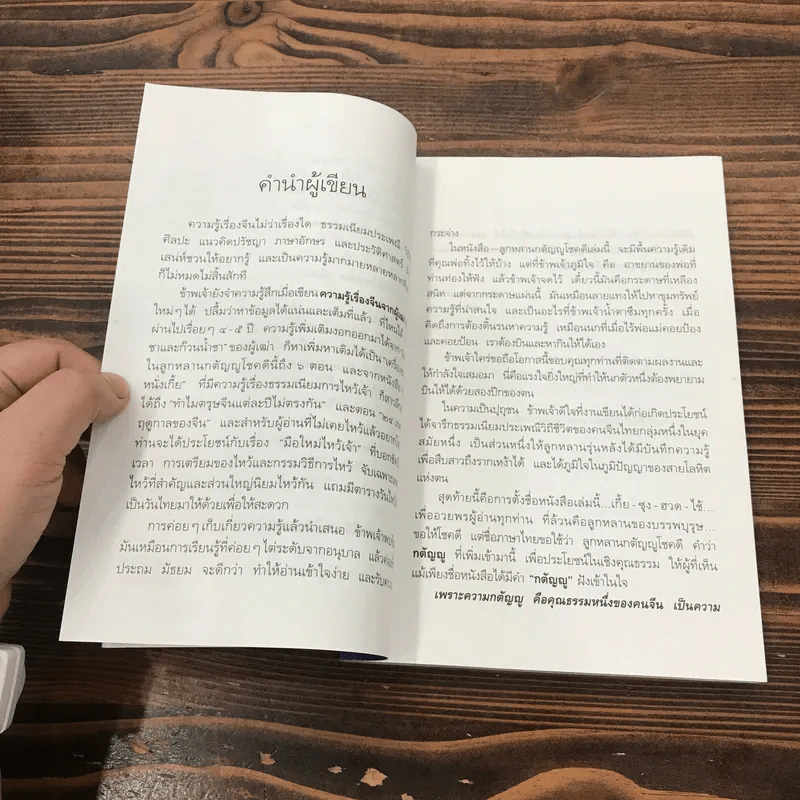 คำนำผู้เขียน
ความรู้เรื่องจีนไม่ว่าเรื่องใด ธรรมเนียมประเพณี
ศิลปะ แนวคิดปรัชญา ภาษาอักษร และประวัติศาสตร์
เสน่ห์ชวนให้อยากรู้ และเป็นความรู้มากมายหลายหลาก
ก็ไม่หมดไม่สิ้นสักที
ข้าพเจ้ายังจำความรู้สึกเมื่อเขียน ความรู้เรื่องจีนจากผู้เฒ่า
ใหม่ๆ ได้ ปลื้มว่าหาข้อมูลได้แน่นและเต็มที่แล้ว ที่ไหนได้
ผ่านไปเรื่อยๆ ๔-๕ ปี ความรู้เพิ่มเติมงอกออกมาได้จาก
ซาและก๊วนน้ำชา" ของผู้เฒ่า ก็หาเพิ่มหาเติมได้เป็น
ในลูกหลานกตัญญูโชคดีนี้ถึง ๖ ตอน และจากหนังสือ
หนั่งเกี้ย" ที่มีความรู้เรื่องธรรมเนียมการไหว้เจ้า
ได้ถึง "ทำไมตรุษจีนแต่ละปีไม่ตรงกัน" และตอน "๒๔
ฤดูกาลของจีน" และสำหรับผู้อ่านที่ไม่เคยไหว้แล้วอยาก
ท่านจะได้ประโยชน์กับเรื่อง "มือใหม่ไหว้เจ้า" ที่บอก
เวลา การเตรียมของไหว้และกรรมวิธีการไหว้ จับเฉพาะ
ไหว้ที่สำคัญและส่วนใหญ่นิยมไหว้กัน แถมมีตารางวัน
เป็นวันไทยมาให้ด้วยเพื่อให้สะดวก
การค่อยๆ เก็บเกี่ยวความรู้แล้วนำเสนอ ข้าพเจ้า
มันเหมือนการเรียนรู้ที่ค่อยๆ ไต่ระดับจากอนุบาล แล้ว
ประถม มัธยม จะดีกว่า ทำให้อ่านเข้าใจง่าย และรับ
กระจ่าง
ในหนังสือ – ลูกหลานกตัญญูโชคดีเล่มนี้ จะมีพื้นความรู้เดิม
ที่คุณพ่อทิ้งไว้ให้บ้าง แต่ที่ข้าพเจ้าภูมิใจ คือ อาขยานของพ่อที่
ท่านท่องให้ฟัง แล้วข้าพเจ้าจดไว้ เดี๋ยวนี้มันคือกระดาษที่เหลือง
สนิท แต่จากกระดาษแผ่นนี้ มันเหมือนลายแทงให้ไปหาขุมทรัพย์
ความรู้ที่น่าสนใจ และเป็นอะไรที่ข้าพเจ้าน้ำตาซึมทุกครั้ง เมื่อ
คิดถึงการต้องดิ้นรนหาความรู้ เหมือนนกที่เมื่อไร้พ่อแม่คอยป้อง
และคอยป้อน เราต้องบินและหากินให้ได้เอง
ข้าพเจ้าใคร่ขอถือโอกาสนี้ขอบคุณทุกท่านที่ติดตามผลงานและ
ให้กำลังใจเสมอมา นี่คือแรงใจยิ่งใหญ่ที่ทำให้นกตัวหนึ่งต้องพยายาม
บินให้ได้ด้วยสองปีกของตน
ในความเป็นปุถุชน ข้าพเจ้าดีใจที่งานเขียนได้ก่อเกิดประโยชน์
ได้จารึกธรรมเนียมประเพณีวิถีชีวิตของคนจีนไทยกลุ่มหนึ่งในยุค
สมัยหนึ่ง เป็นส่วนหนึ่งให้ลูกหลานรุ่นหลังได้มีบันทึกความรู้
เพื่อสืบสาวถึงรากเหง้าได้ และได้ภูมิใจในภูมิปัญญาของสายโลหิต
แห่งตน
สุดท้ายนี้คือการตั้งชื่อหนังสือเล่มนี้...เกี้ย - ซุง - ฮวด - ไช้...
เพื่ออวยพรผู้อ่านทุกท่าน ที่ล้วนคือลูกหลานของบรรพบุรุษ...
ขอให้โชคดี แต่ชื่อภาษาไทยขอใช้ว่า ลูกหลานกตัญญูโชคดี คำว่า
กตัญญู ที่เพิ่มเข้ามานี้ เพื่อประโยชน์ในเชิงคุณธรรม ให้ผู้ที่เห็น
แม้เพียงชื่อหนังสือได้มีคำ "กตัญญู" ฝังเข้าในใจ
เพราะความกตัญญู คือคุณธรรมหนึ่งของคนจีน เป็นความ